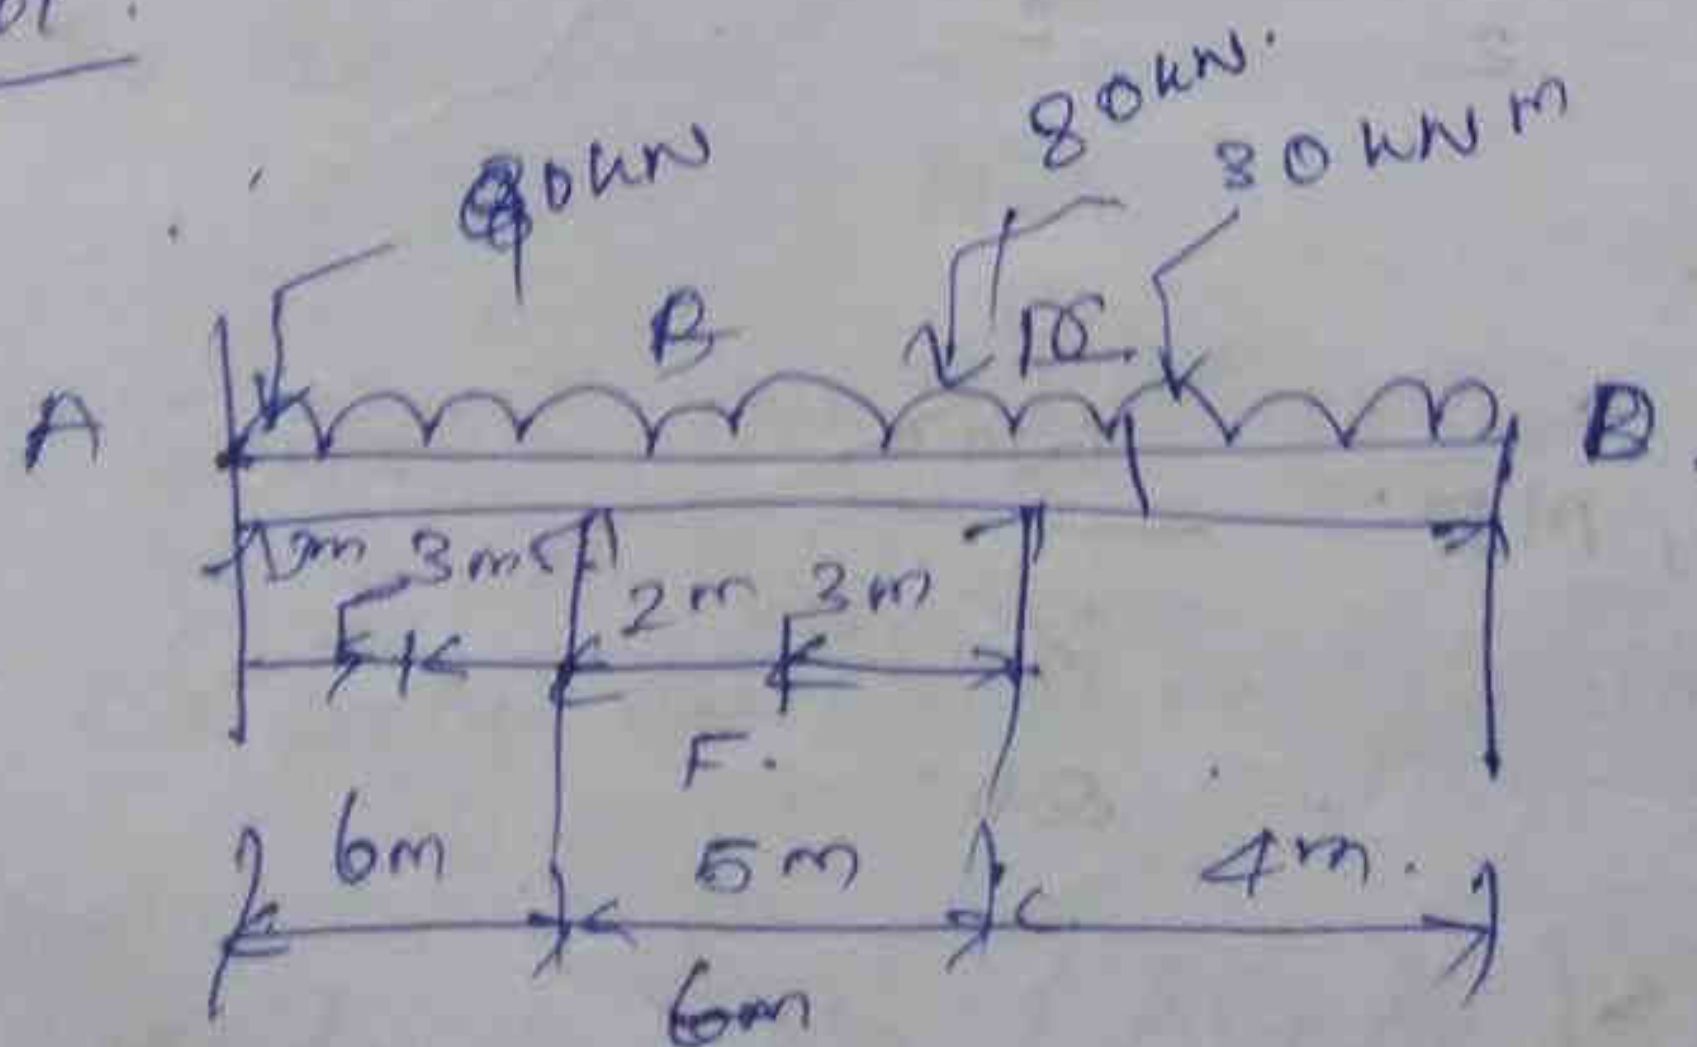 80kN.
90kN
30kNm
B
A
B
3m 3m
2m 3m
F.
6m 5m 4m.
C
6m